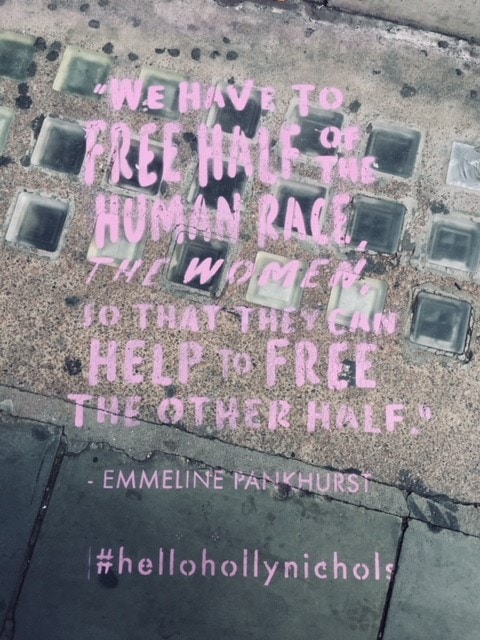 "WE HAVE TO
FREE HALF OF THE
HUMAN RACE,
THE WOMEN,
SO THAT THEY CAN
HELP TO FREE
THE OTHER HALF."
- EMMELINE PANKHURST
|#hellohollynichols